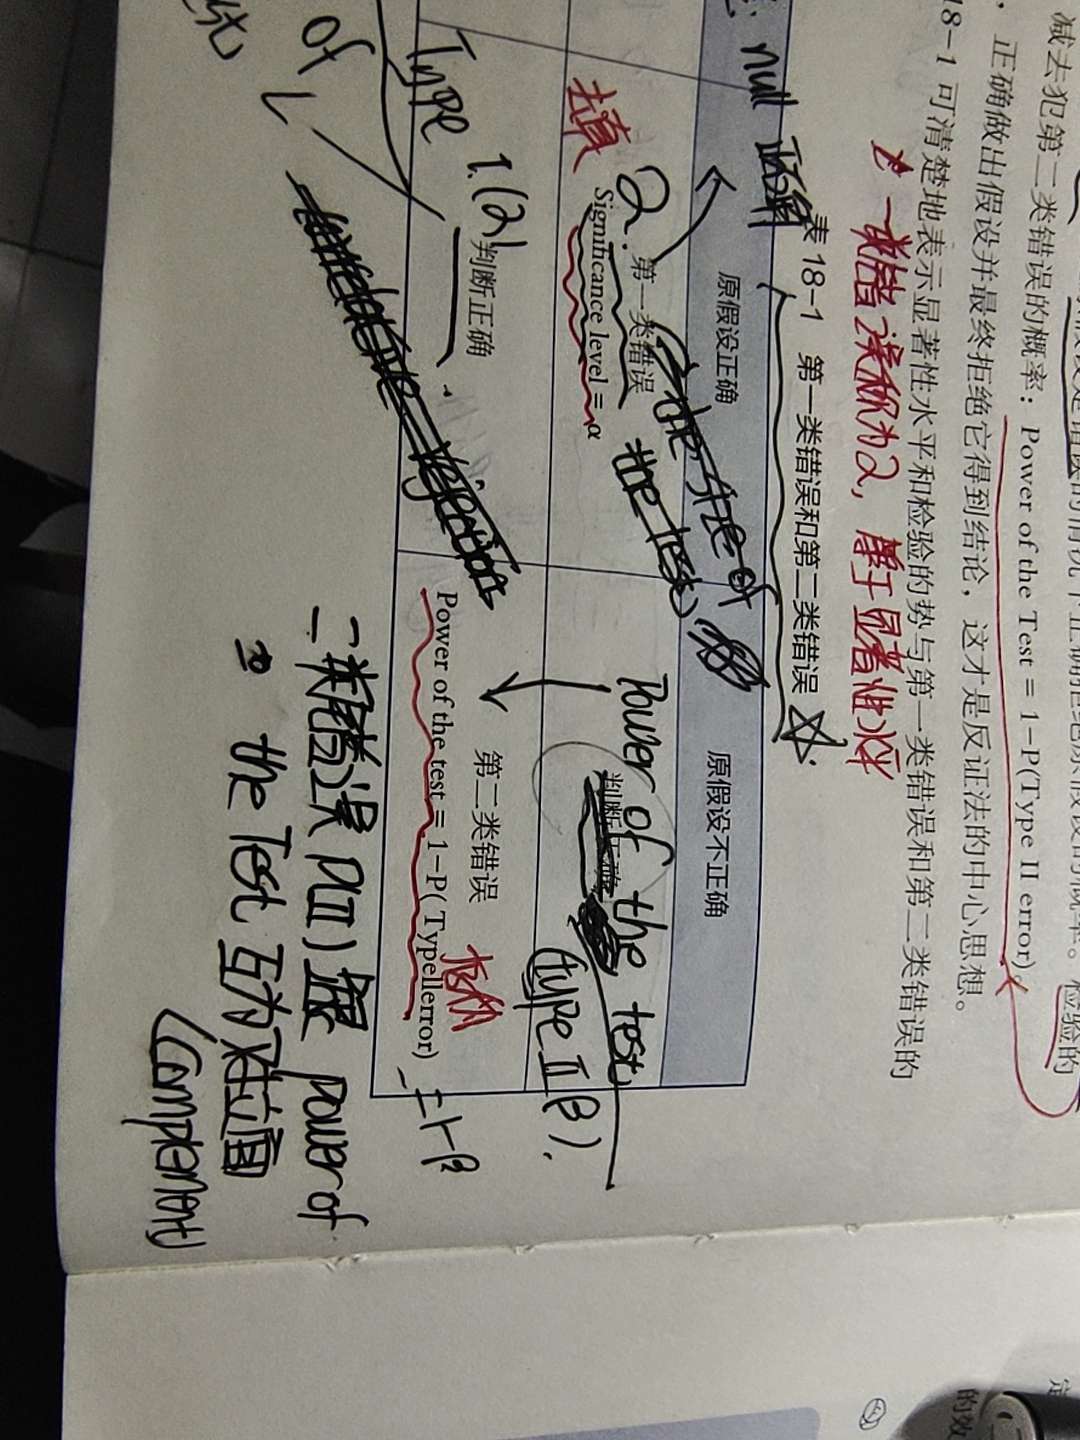 减去犯第二类错误的概率：Power of the Test = 1-P(Type II error)。检验的
正确做出假设并最终拒绝它得到结论，这才是反证法的中心思想。
18-1 可清楚地表示显著性水平和检验的势与第一类错误和第二类错误的
一类错误称为α，属于显著性水平
表 18-1 第一类错误和第二类错误
null 正确
原假设正确
原假设不正确
去真
2.
第一类错误
Significance level = α
the size of
the test)
Power of the test
判断正确
(type II β).
Type
1.(2)
判断正确
第二类错误
存伪
Power of the test = 1-P(TypeIIerror)
= 1-β
of
二类错误 P(II) 跟 power of
the Test 互为对立面
(complement)
的效